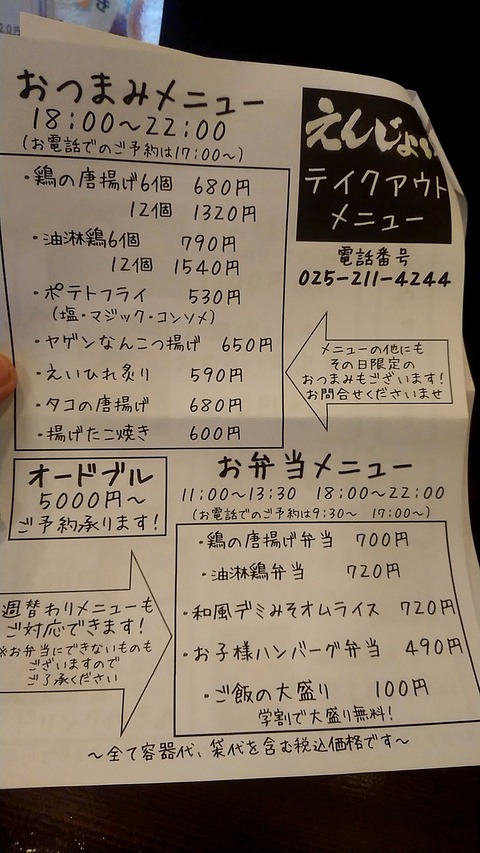 おつまみメニュー
18:00～22:00
(お電話でのご予約は17:00～)
・鶏の唐揚げ6個 680円
12個 1320円
・油淋鶏6個 790円
12個 1540円
・ポテトフライ 530円
(塩・マジック・コンソメ)
・ヤゲンなんこつ揚げ 650円
・えいひれ炙り 590円
・タコの唐揚げ 680円
・揚げたこ焼き 600円
えんじょい
テイクアウト
メニュー
電話番号
025-211-4244
メニューの他にも
その日限定の
おつまみもございます!
お問合せくださいませ
オードブル
5000円～
ご予約承ります!
お弁当メニュー
11:00～13:30 18:00～22:00
(お電話でのご予約は9:30～ 17:00～)
・鶏の唐揚げ弁当 700円
・油淋鶏弁当 720円
・和風デミみそオムライス 720円
・お子様ハンバーグ弁当 490円
・ご飯の大盛り 100円
学割で大盛り無料!
週替わりメニューも
ご対応できます!
※お弁当にできないものも
ございますので
ご了承ください
～全て容器代、袋代を含む税込価格です～